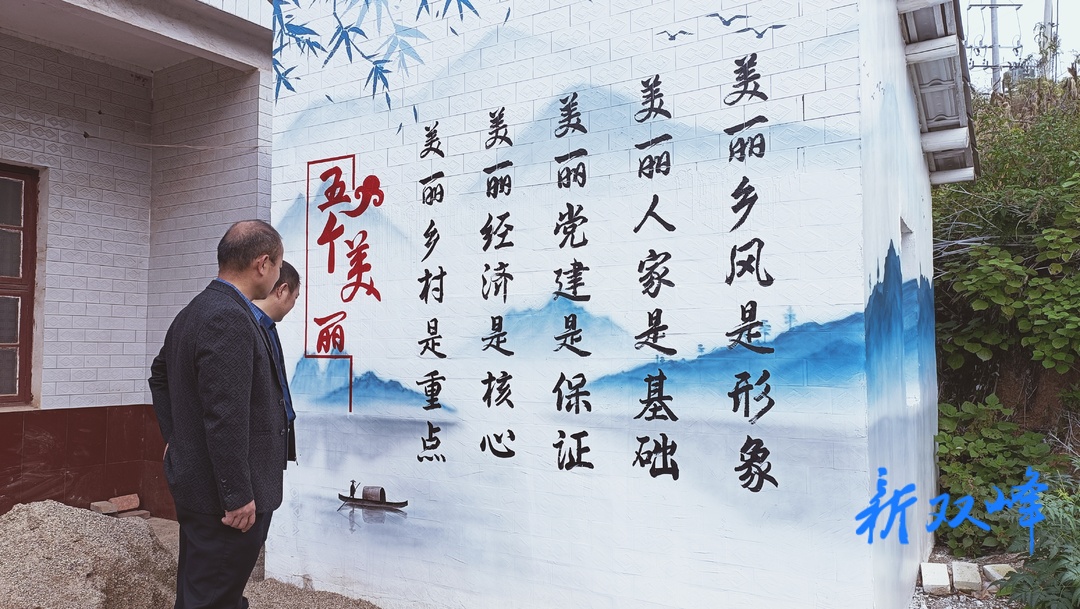 五个美丽
美丽乡村是重点
美丽经济是核心
美丽党建是保证
美丽人家是基础
美丽乡风是形象
新双峰